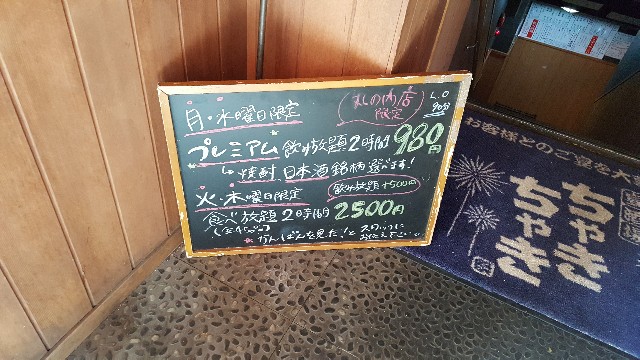 月・水曜日限定
札の内店
限定
L.O
90分
プレミアム飲み放題2時間980円
焼酎、日本酒銘柄選べます!
火・木曜日限定
飲み放題+500円
食べ放題2時間2500円
※かんばんを見た!とスタッフに
お伝え下さい
お客様とのご宴を大
ちゃき
ちゃき